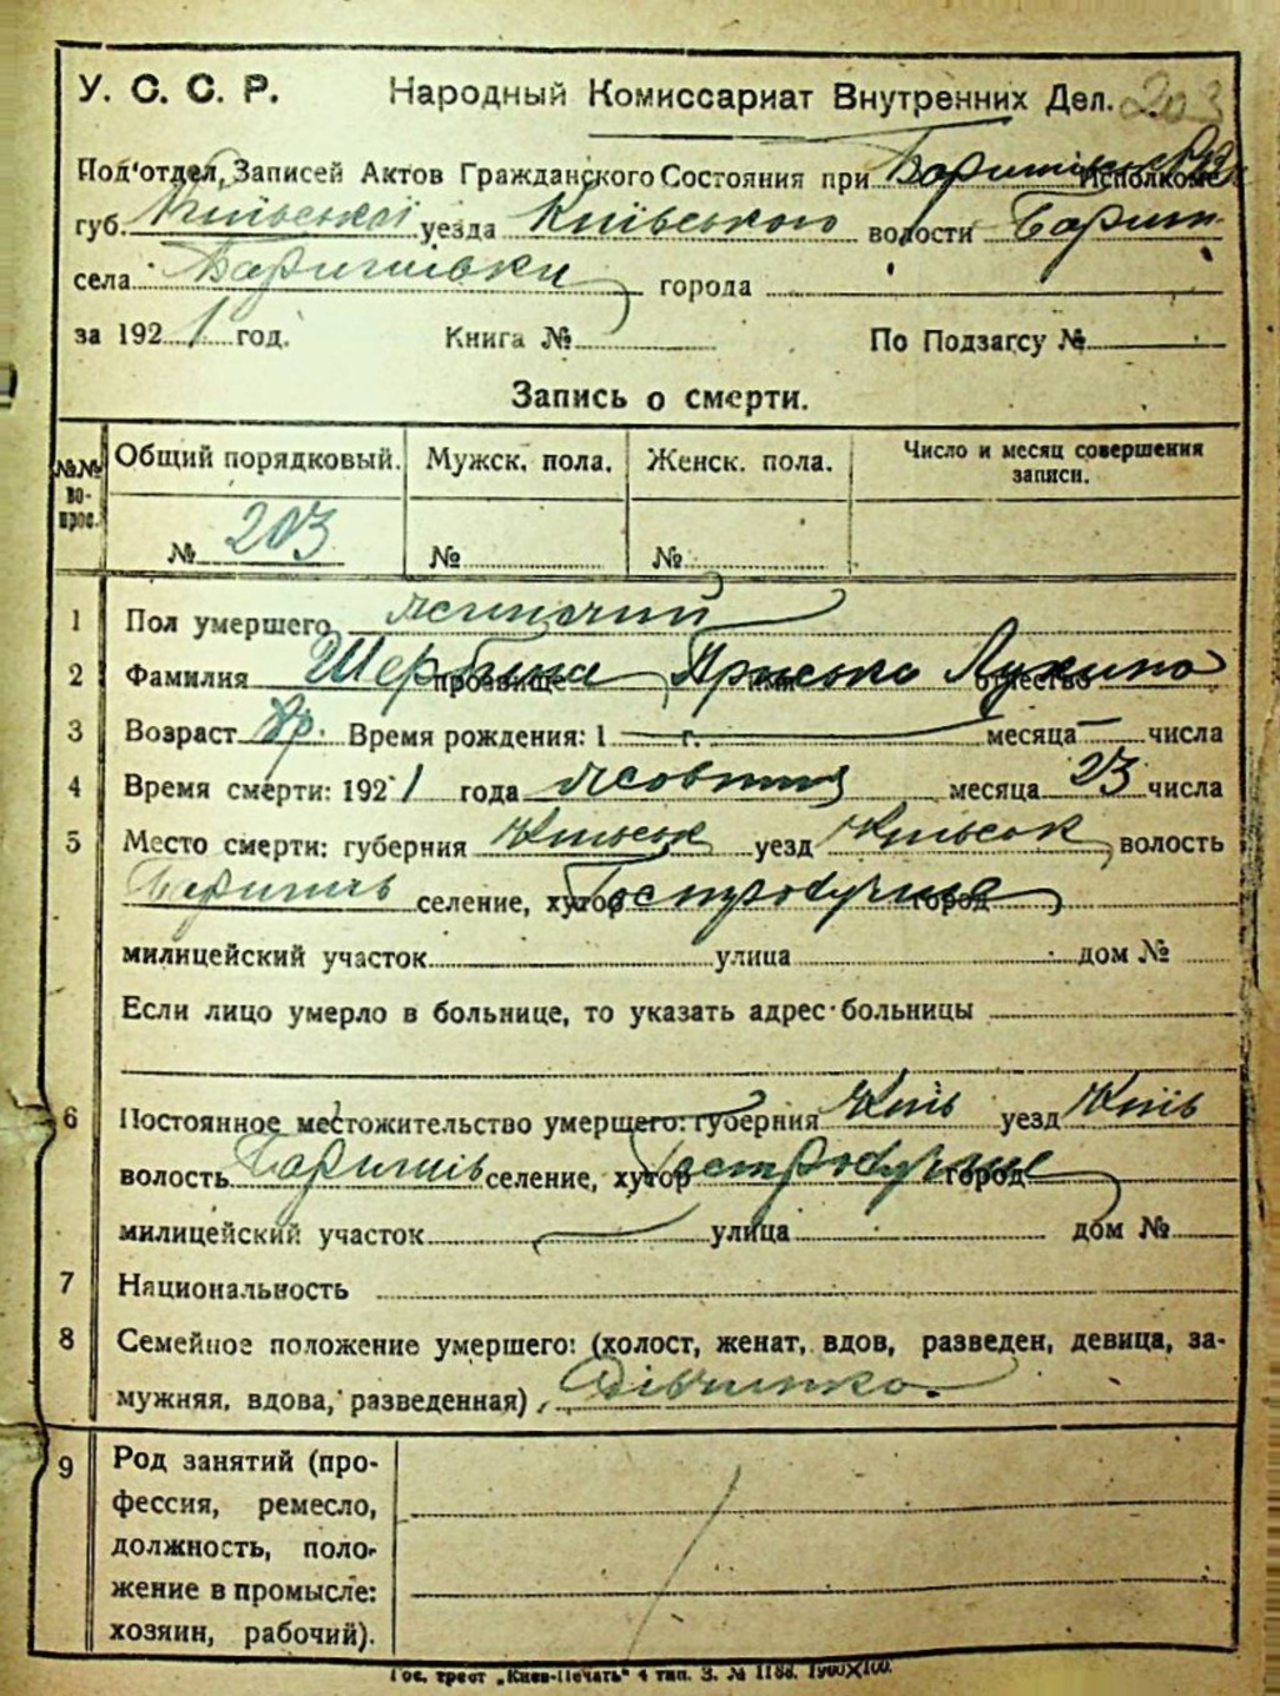 У. С. С. Р. Народный Комиссариат Внутренних Дел. 203
Под'отдел, Записей Актов Гражданского Состояния при Исполкоме
губ. Київської уезда Київського волости Бариш
села Баришівки города
за 1921 год. Книга № По Подзагсу №
Запись о смерти.
№№ во-прос. Общий порядковый. Мужск. пола. Женск. пола. Число и месяц совершения записи.
№ 203 № №
1 Пол умершего жіночий
2 Фамилия Щербина прозвище Пріська имя отчество
3 Возраст Время рождения: 1 г. месяца числа
4 Время смерти: 1921 года жовтня месяца 23 числа
5 Место смерти: губерния Київськ уезд Київськ волость
Баришів селение, хутор город
милицейский участок улица дом №
Если лицо умерло в больнице, то указать адрес больницы
6 Постоянное местожительство умершего: губерния Київ уезд Київ
волость Баришів селение, хутор город
милицейский участок улица дом №
7 Национальность
8 Семейное положение умершего: (холост, женат, вдов, разведен, девица, за-
мужняя, вдова, разведенная), Дівчинка.
9 Род занятий (про-
фессия, ремесло,
должность, поло-
жение в промысле:
хозяин, рабочий).
Гос. трест „Киев-Печать" 4 тип. З. № 1188. 1900×100.